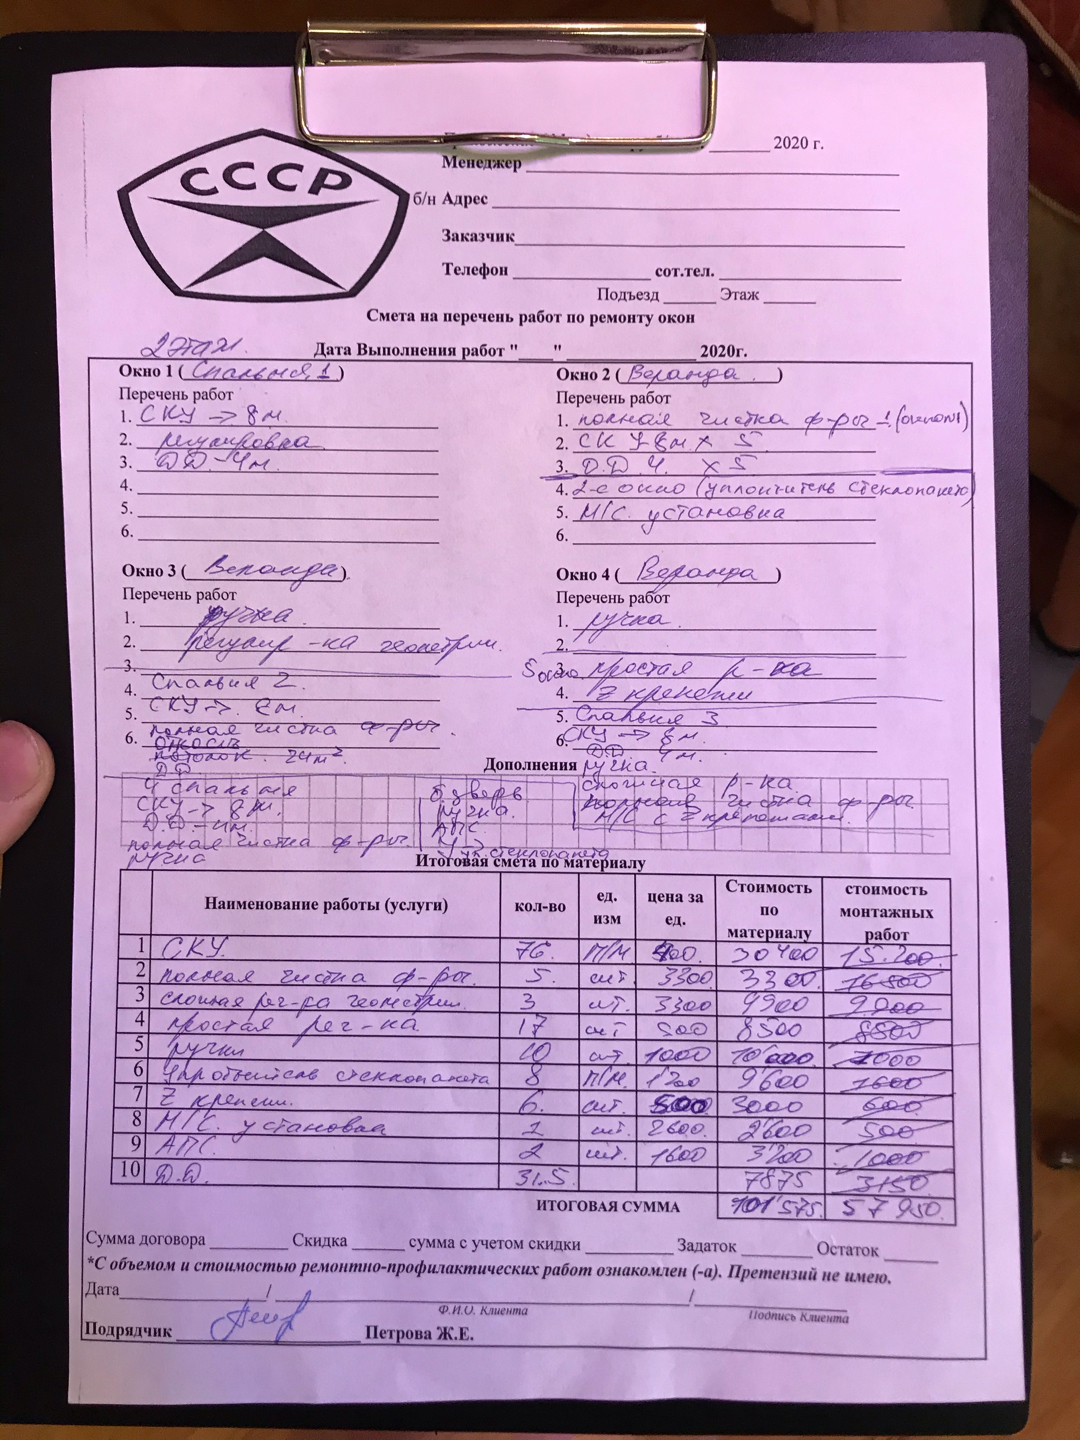 СССР
2020 г.
Менеджер
б/н Адрес
Заказчик
Телефон сот.тел.
Подъезд Этаж
Смета на перечень работ по ремонту окон
2 этаж.
Дата Выполнения работ "___" 2020г.
Окно 1 (Спальня 1)
Перечень работ
1. СКУ → 8 м.
2. регулировка
3. Д.Д. - 4 м.
4.
5.
6.
Окно 2 (Веранда)
Перечень работ
1. полная чистка ф-ры - 1.
2. СКУ 8м х 5
3. Д.Д. 4. х 5
4. 2-е окно (уплотнитель стеклопакета)
5. М/С. установка
6.
Окно 3 (Веранда)
Перечень работ
1. ручка
2. регулир-ка геометрии.
3.
4. Спальня 2.
5. СКУ →
6. полная чистка ф-ры.
откосы
потолок 24м².
Д.Д
Окно 4 (Веранда)
Перечень работ
1. ручка.
2.
3. простая р-ка
4. Z крепежи
5. Спальня 3
6. СКУ → 8 м.
Д.Д. 4м.
Дополнения ручка.
4 спальня
СКУ → 8м.
Д.Д. - 4м.
полная чистка ф-ры.
ручка
б.дверь
ручка.
АПС.
уп. стеклопакета
сложная р-ка.
полная чистка ф-ры.
М/С с Z крепежами.
Итоговая смета по материалу
Наименование работы (услуги) кол-во ед. изм цена за ед. Стоимость по материалу стоимость монтажных работ
1 СКУ. 76. П/М 400. 30400 15.200.
2 полная чистка ф-ры. 5. шт. 3300. 3300. 16500
3 сложная рег-ка геометрии. 3 шт. 3300 9900 9.900
4 простая рег-ка 17 шт 500 8500 8500
5 ручки 10 шт. 1000 10000 1000
6 Уплотнитель стеклопакета 8 П/М. 1200 9600 1600
7 Z крепежи. 6. шт. 500 3000 600
8 М/С. установка 1 шт. 2600. 2600 500
9 АПС. 2 шт. 1600 3200 1000
10 Д.Д. 31.5 7875 3150
ИТОГОВАЯ СУММА 101575. 57950.
Сумма договора Скидка сумма с учетом скидки Задаток Остаток
*С объемом и стоимостью ремонтно-профилактических работ ознакомлен (-а). Претензий не имею.
Дата / /
Ф.И.О. Клиента Подпись Клиента
Подрядчик Петрова Ж.Е.